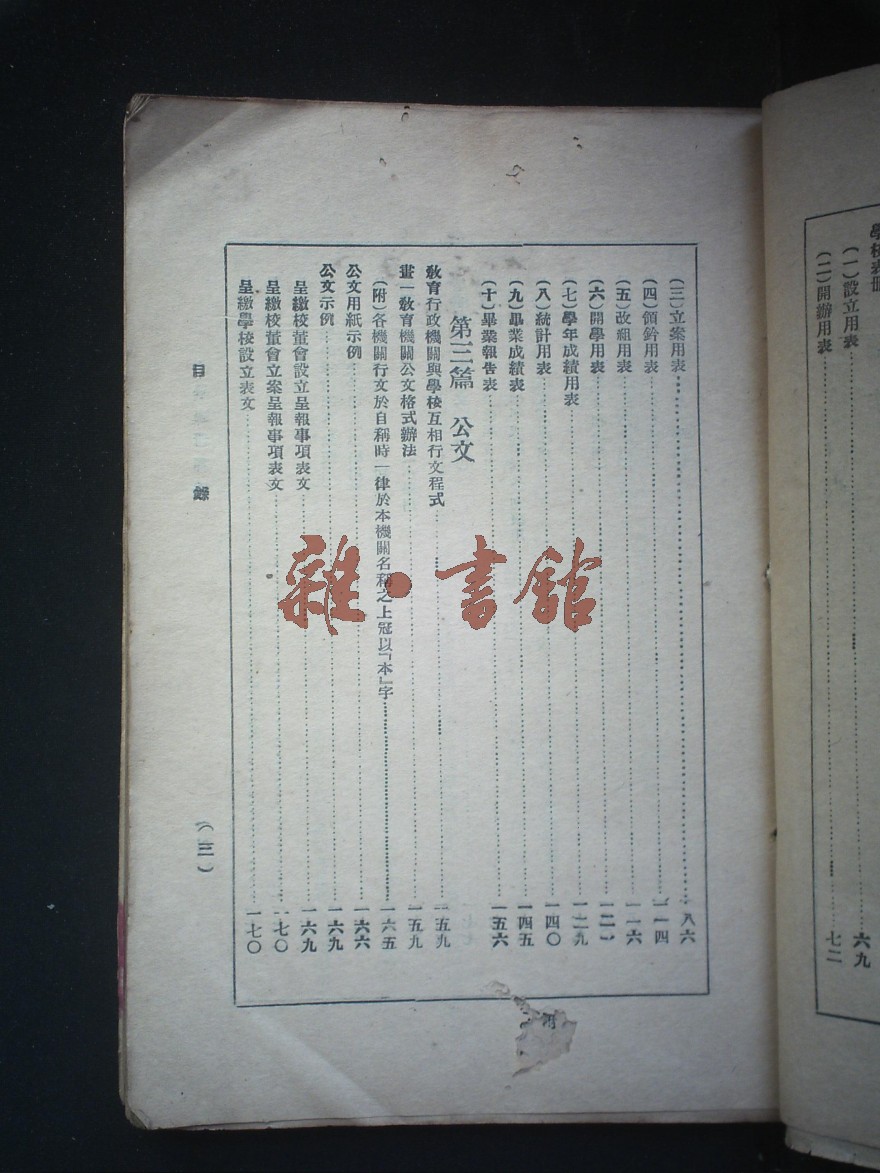 學校表册
(一)設立用表……六九
(二)開辦用表……七二
(三)立案用表……八六
(四)領鈐用表……一一四
(五)改組用表……一一六
(六)開學用表……一二一
(七)學年成績用表……一二九
(八)統計用表……一四〇
(九)畢業成績表……一四五
(十)畢業報告表……一五六
第三篇 公文
教育行政機關與學校互相行文程式……一五九
畫一教育機關公文格式辦法……一五九
(附)各機關行文於自稱時一律於本機關名稱之上冠以「本」字……一六五
公文用紙示例……一六六
公文示例……一六九
呈繳校董會設立呈報事項表文……一六九
呈繳校董會立案呈報事項表文……一七〇
呈繳學校設立表文……一七〇
目錄
(三)
雜·書館